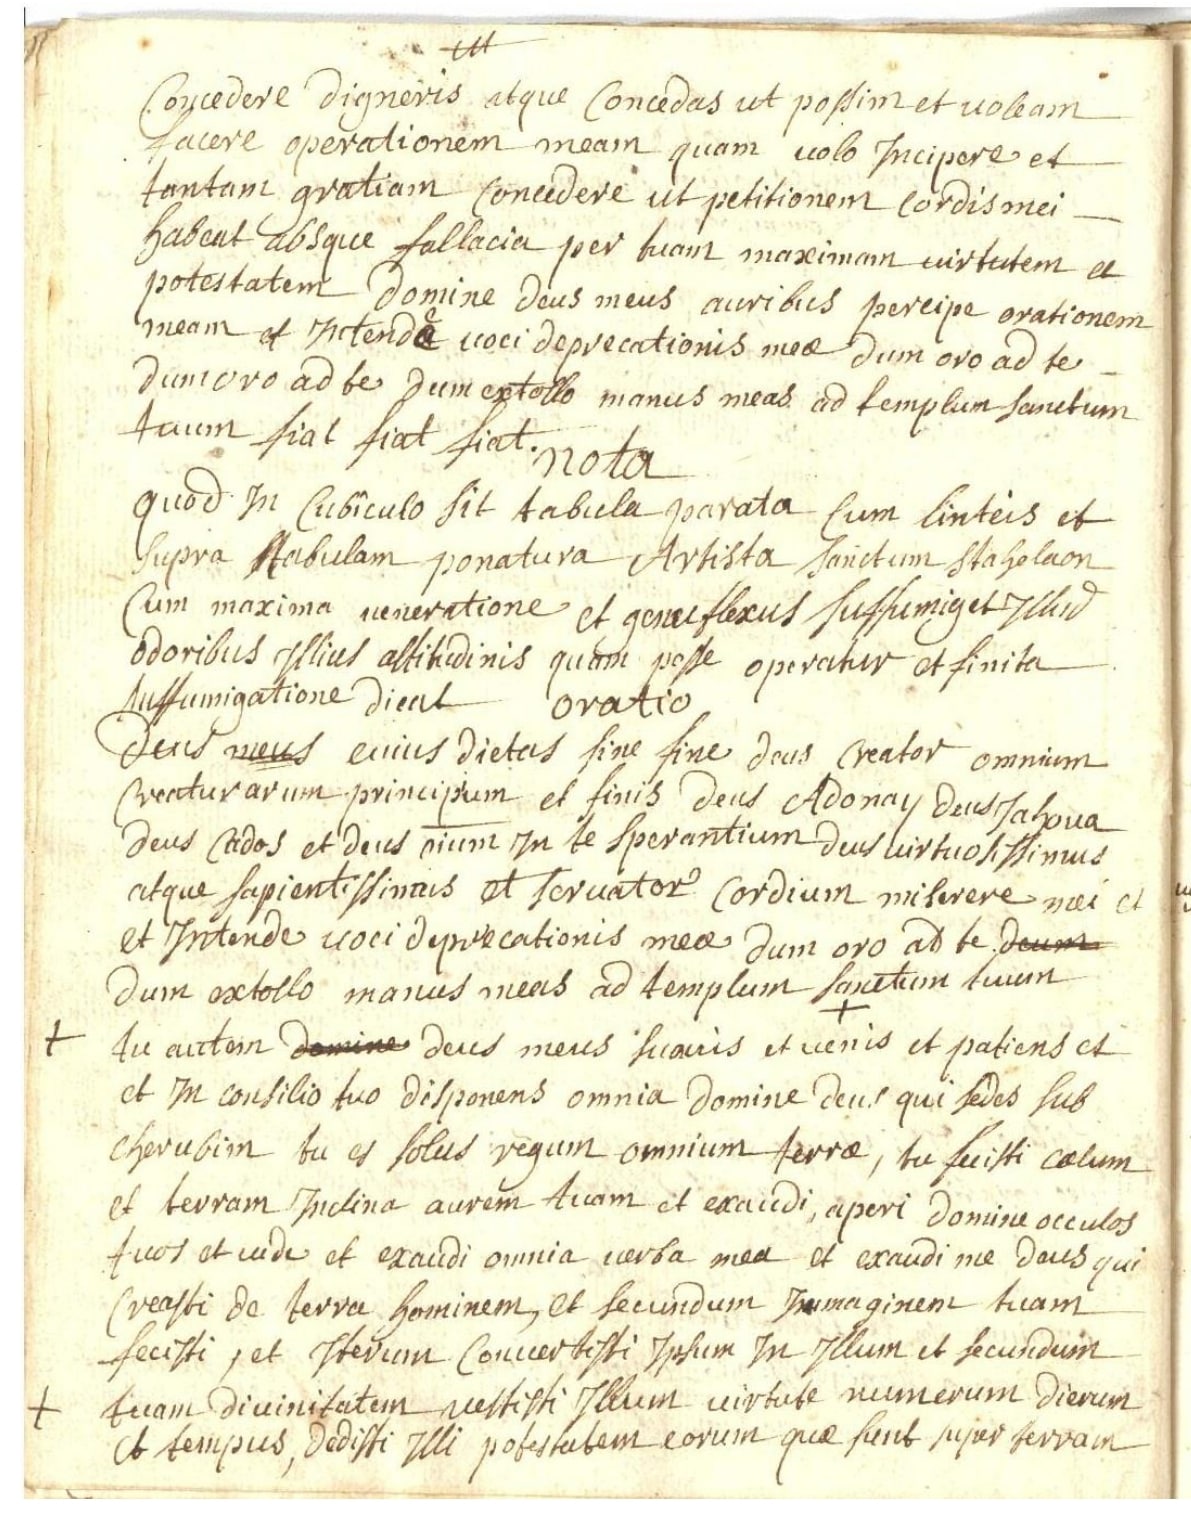 ut
Concedere digneris atque Concedas ut possim et uoleam
facere operationem meam quam uolo Incipere et
tantam gratiam Concedere ut petitionem Cordis mei
habeat absque fallacia per tuam maximam uirtutem et
potestatem domine deus meus auribus percipe orationem
meam et Intende uoci deprecationis meæ dum oro ad te
dum oro ad te dum extollo manus meas ad templum sanctum
tuum fiat fiat fiat.
nota
quod In Cubiculo sit tabula parata Cum linteis et
supra tabulam ponatur a Artista sanctum
Cum maxima ueneratione et genuflexus suffumiget Illud
odoribus Illius altitudinis quam posse operatur et finita
suffumigatione dicat oratio
Deus meus cuius dietas sine fine deus Creator omnium
Creaturarum principium et finis deus Adonay deus Jahoua
deus Cados et deus oium In te sperantium deus uirtuosissimus
atque sapientissimus et seruator Cordium miserere mei et
et Intende uoci deprecationis meæ dum oro ad te deum
dum extollo manus meas ad templum sanctum tuum
+
+ tu autem domine deus meus suauis et uenis et patiens et
et In consilio tuo disponens omnia domine deus qui sedes sub
cherubim tu es solus regum omnium terræ, tu fecisti cœlum
et terram Inclina aurem tuam et exaudi, aperi domine occulos
tuos et uide et exaudi omnia uerba mea et exaudi me deus qui
Creasti de terra hominem, et secundum Immaginem tuam
fecisti, et Iterum Conuertisti Ipsum In Illum et secundum
+ tuam diuinitatem uestisti Illum uirtute numerum dierum
et tempus, dedisti Illi potestatem eorum quæ sunt super terram